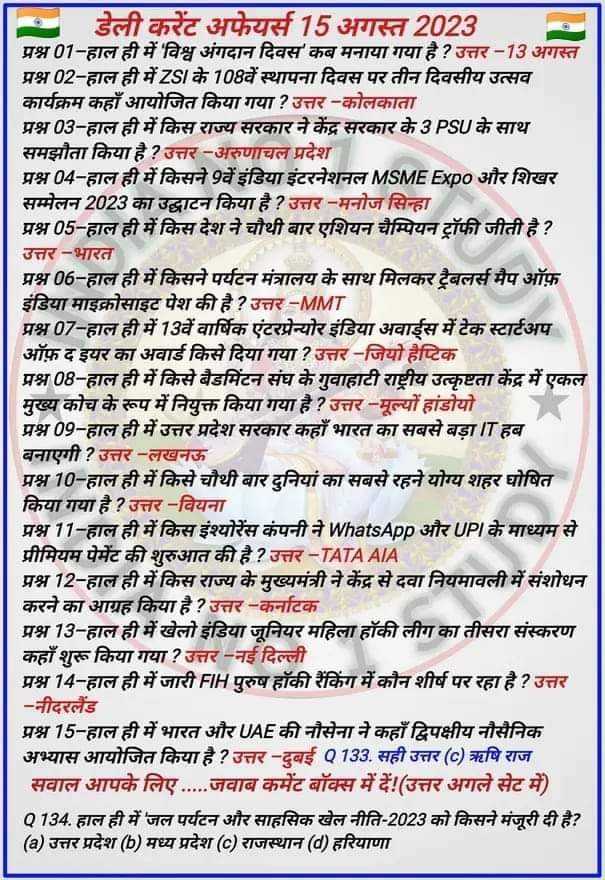 डेली करेंट अफेयर्स 15 अगस्त 2023
प्रश्न 01–हाल ही में 'विश्व अंगदान दिवस' कब मनाया गया है ? उत्तर –13 अगस्त
प्रश्न 02–हाल ही में ZSI के 108वें स्थापना दिवस पर तीन दिवसीय उत्सव
कार्यक्रम कहाँ आयोजित किया गया ? उत्तर –कोलकाता
प्रश्न 03–हाल ही में किस राज्य सरकार ने केंद्र सरकार के 3 PSU के साथ
समझौता किया है ? उत्तर –अरुणाचल प्रदेश
प्रश्न 04–हाल ही में किसने 9वें इंडिया इंटरनेशनल MSME Expo और शिखर
सम्मेलन 2023 का उद्घाटन किया है ? उत्तर –मनोज सिन्हा
प्रश्न 05–हाल ही में किस देश ने चौथी बार एशियन चैम्पियन ट्रॉफी जीती है ?
उत्तर –भारत
प्रश्न 06–हाल ही में किसने पर्यटन मंत्रालय के साथ मिलकर ट्रैबलर्स मैप ऑफ़
इंडिया माइक्रोसाइट पेश की है ? उत्तर –MMT
प्रश्न 07–हाल ही में 13वें वार्षिक एंटरप्रेन्योर इंडिया अवार्ड्स में टेक स्टार्टअप
ऑफ़ द इयर का अवार्ड किसे दिया गया ? उत्तर –जियो हैप्टिक
प्रश्न 08–हाल ही में किसे बैडमिंटन संघ के गुवाहाटी राष्ट्रीय उत्कृष्टता केंद्र में एकल
मुख्य कोच के रूप में नियुक्त किया गया है ? उत्तर –मूल्यों हांडोयो
प्रश्न 09–हाल ही में उत्तर प्रदेश सरकार कहाँ भारत का सबसे बड़ा IT हब
बनाएगी ? उत्तर –लखनऊ
प्रश्न 10–हाल ही में किसे चौथी बार दुनियां का सबसे रहने योग्य शहर घोषित
किया गया है ? उत्तर –वियना
प्रश्न 11–हाल ही में किस इंश्योरेंस कंपनी ने WhatsApp और UPI के माध्यम से
प्रीमियम पेमेंट की शुरुआत की है ? उत्तर –TATA AIA
प्रश्न 12–हाल ही में किस राज्य के मुख्यमंत्री ने केंद्र से दवा नियमावली में संशोधन
करने का आग्रह किया है ? उत्तर –कर्नाटक
प्रश्न 13–हाल ही में खेलो इंडिया जूनियर महिला हॉकी लीग का तीसरा संस्करण
कहाँ शुरू किया गया ? उत्तर –नई दिल्ली
प्रश्न 14–हाल ही में जारी FIH पुरुष हॉकी रैंकिंग में कौन शीर्ष पर रहा है ? उत्तर
–नीदरलैंड
प्रश्न 15–हाल ही में भारत और UAE की नौसेना ने कहाँ द्विपक्षीय नौसैनिक
अभ्यास आयोजित किया है ? उत्तर –दुबई Q 133. सही उत्तर (c) ऋषि राज
सवाल आपके लिए .....जवाब कमेंट बॉक्स में दें!(उत्तर अगले सेट में)
Q 134. हाल ही में 'जल पर्यटन और साहसिक खेल नीति-2023 को किसने मंजूरी दी है?
(a) उत्तर प्रदेश (b) मध्य प्रदेश (c) राजस्थान (d) हरियाणा